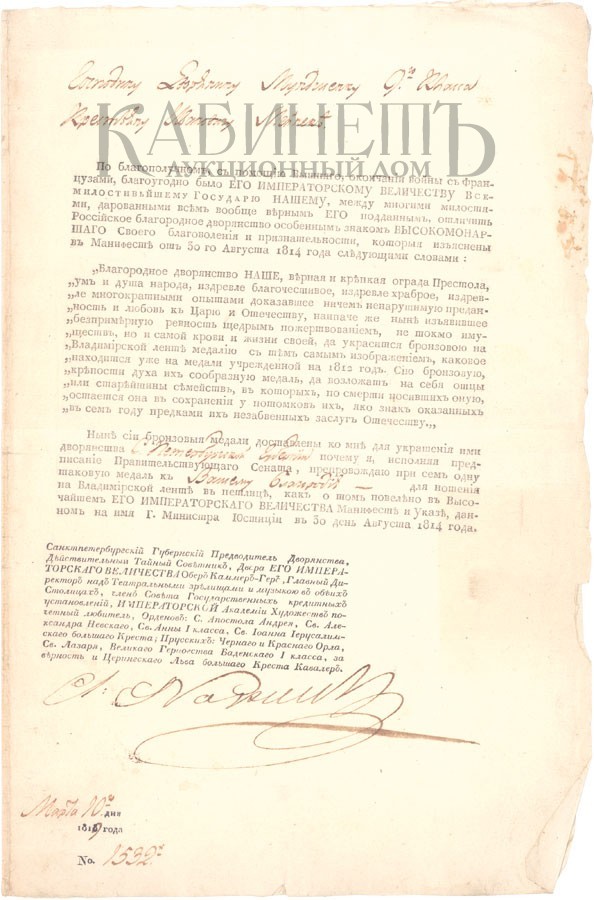 КАБИНЕТЪ
АУКЦИОННЫЙ ДОМ
9го Класса
По благополучномъ, съ помощію Вышняго, окончаніи войны съ Фран-
цузами, благоугодно было ЕГО ИМПЕРАТОРСКОМУ ВЕЛИЧЕСТВУ Все-
милостивѣйшему Государю НАШЕМУ, между многими милостя-
ми, дарованными всѣмъ вообще вѣрнымъ ЕГО подданнымъ, отличить
Россійское благородное дворянство особеннымъ знакомъ ВЫСОКОМОНАР-
ШАГО Своего благоволенія и признательности, которыя изъяснены
въ Манифестѣ отъ 30 го Августа 1814 года слѣдующими словами:
„Благородное дворянство НАШЕ, вѣрная и крѣпкая ограда Престола,
„умъ и душа народа, издревле благочестивое, издревле храброе, издрев-
„ле многократными опытами доказавшее ничемъ ненарушимую предан-
„ность и любовь къ Царю и Отечеству, наипаче же нынѣ изъявившее
„безпримѣрную ревность щедрымъ пожертвованіемъ, не токмо иму-
„ществъ, но и самой крови и жизни своей, да украсится бронзовою на
„Владимірской лентѣ медалію съ тѣмъ самымъ изображеніемъ, каковое
„находится уже на медали учрежденной на 1812 годъ. Сію бронзовую,
„крѣпости духа ихъ сообразную медаль, да возложатъ на себя отцы
„или старѣйшины семействъ, въ которыхъ, по смерти носившихъ оную,
„остается она въ сохраненіи у потомковъ ихъ, яко знакъ оказанныхъ
„въ семъ году предками ихъ незабвенныхъ заслугъ Отечеству.„
Нынѣ сіи бронзовыя медали доставлены ко мнѣ для украшенія ими
дворянства С Петербургской Губерніи почему я, исполняя пред-
писаніе Правительствующаго Сената, препровождаю при семъ одну
таковую медаль къ Вашему Благородію для ношенія
на Владимірской лентѣ въ петлицѣ, какъ о томъ повелѣно въ Высо-
чайшемъ ЕГО ИМПЕРАТОРСКАГО ВЕЛИЧЕСТВА Манифестѣ и Указѣ, дан-
номъ на имя Г. Министра Юстиціи въ 30 день Августа 1814 года.
Санктпетербургскій Губернскій Предводитель Дворянства,
Дѣйствительный Тайный Совѣтникъ, Двора ЕГО ИМПЕРА-
ТОРСКАГО ВЕЛИЧЕСТВА Оберъ Каммеръ-Геръ, Главный Ди-
ректоръ надъ Театральными зрѣлищами и музыкою въ обѣихъ
Столицахъ, членъ Совѣта Государственныхъ кредитныхъ
установленій, ИМПЕРАТОРСКОЙ Академіи Художествъ по-
четный любитель, Орденовъ: С. Апостола Андрея, Св. Але-
ксандра Невскаго, Св. Анны I класса, Св. Іоанна Іерусалим-
скаго большаго Креста; Прусскихъ: Чернаго и Краснаго Орла,
Св. Лазаря, Великаго Герцогства Баденскаго I класса, за
вѣрность и Церингскаго Льва большаго Креста Кавалеръ.
Марта 10го дня
1819 года
No. 1532